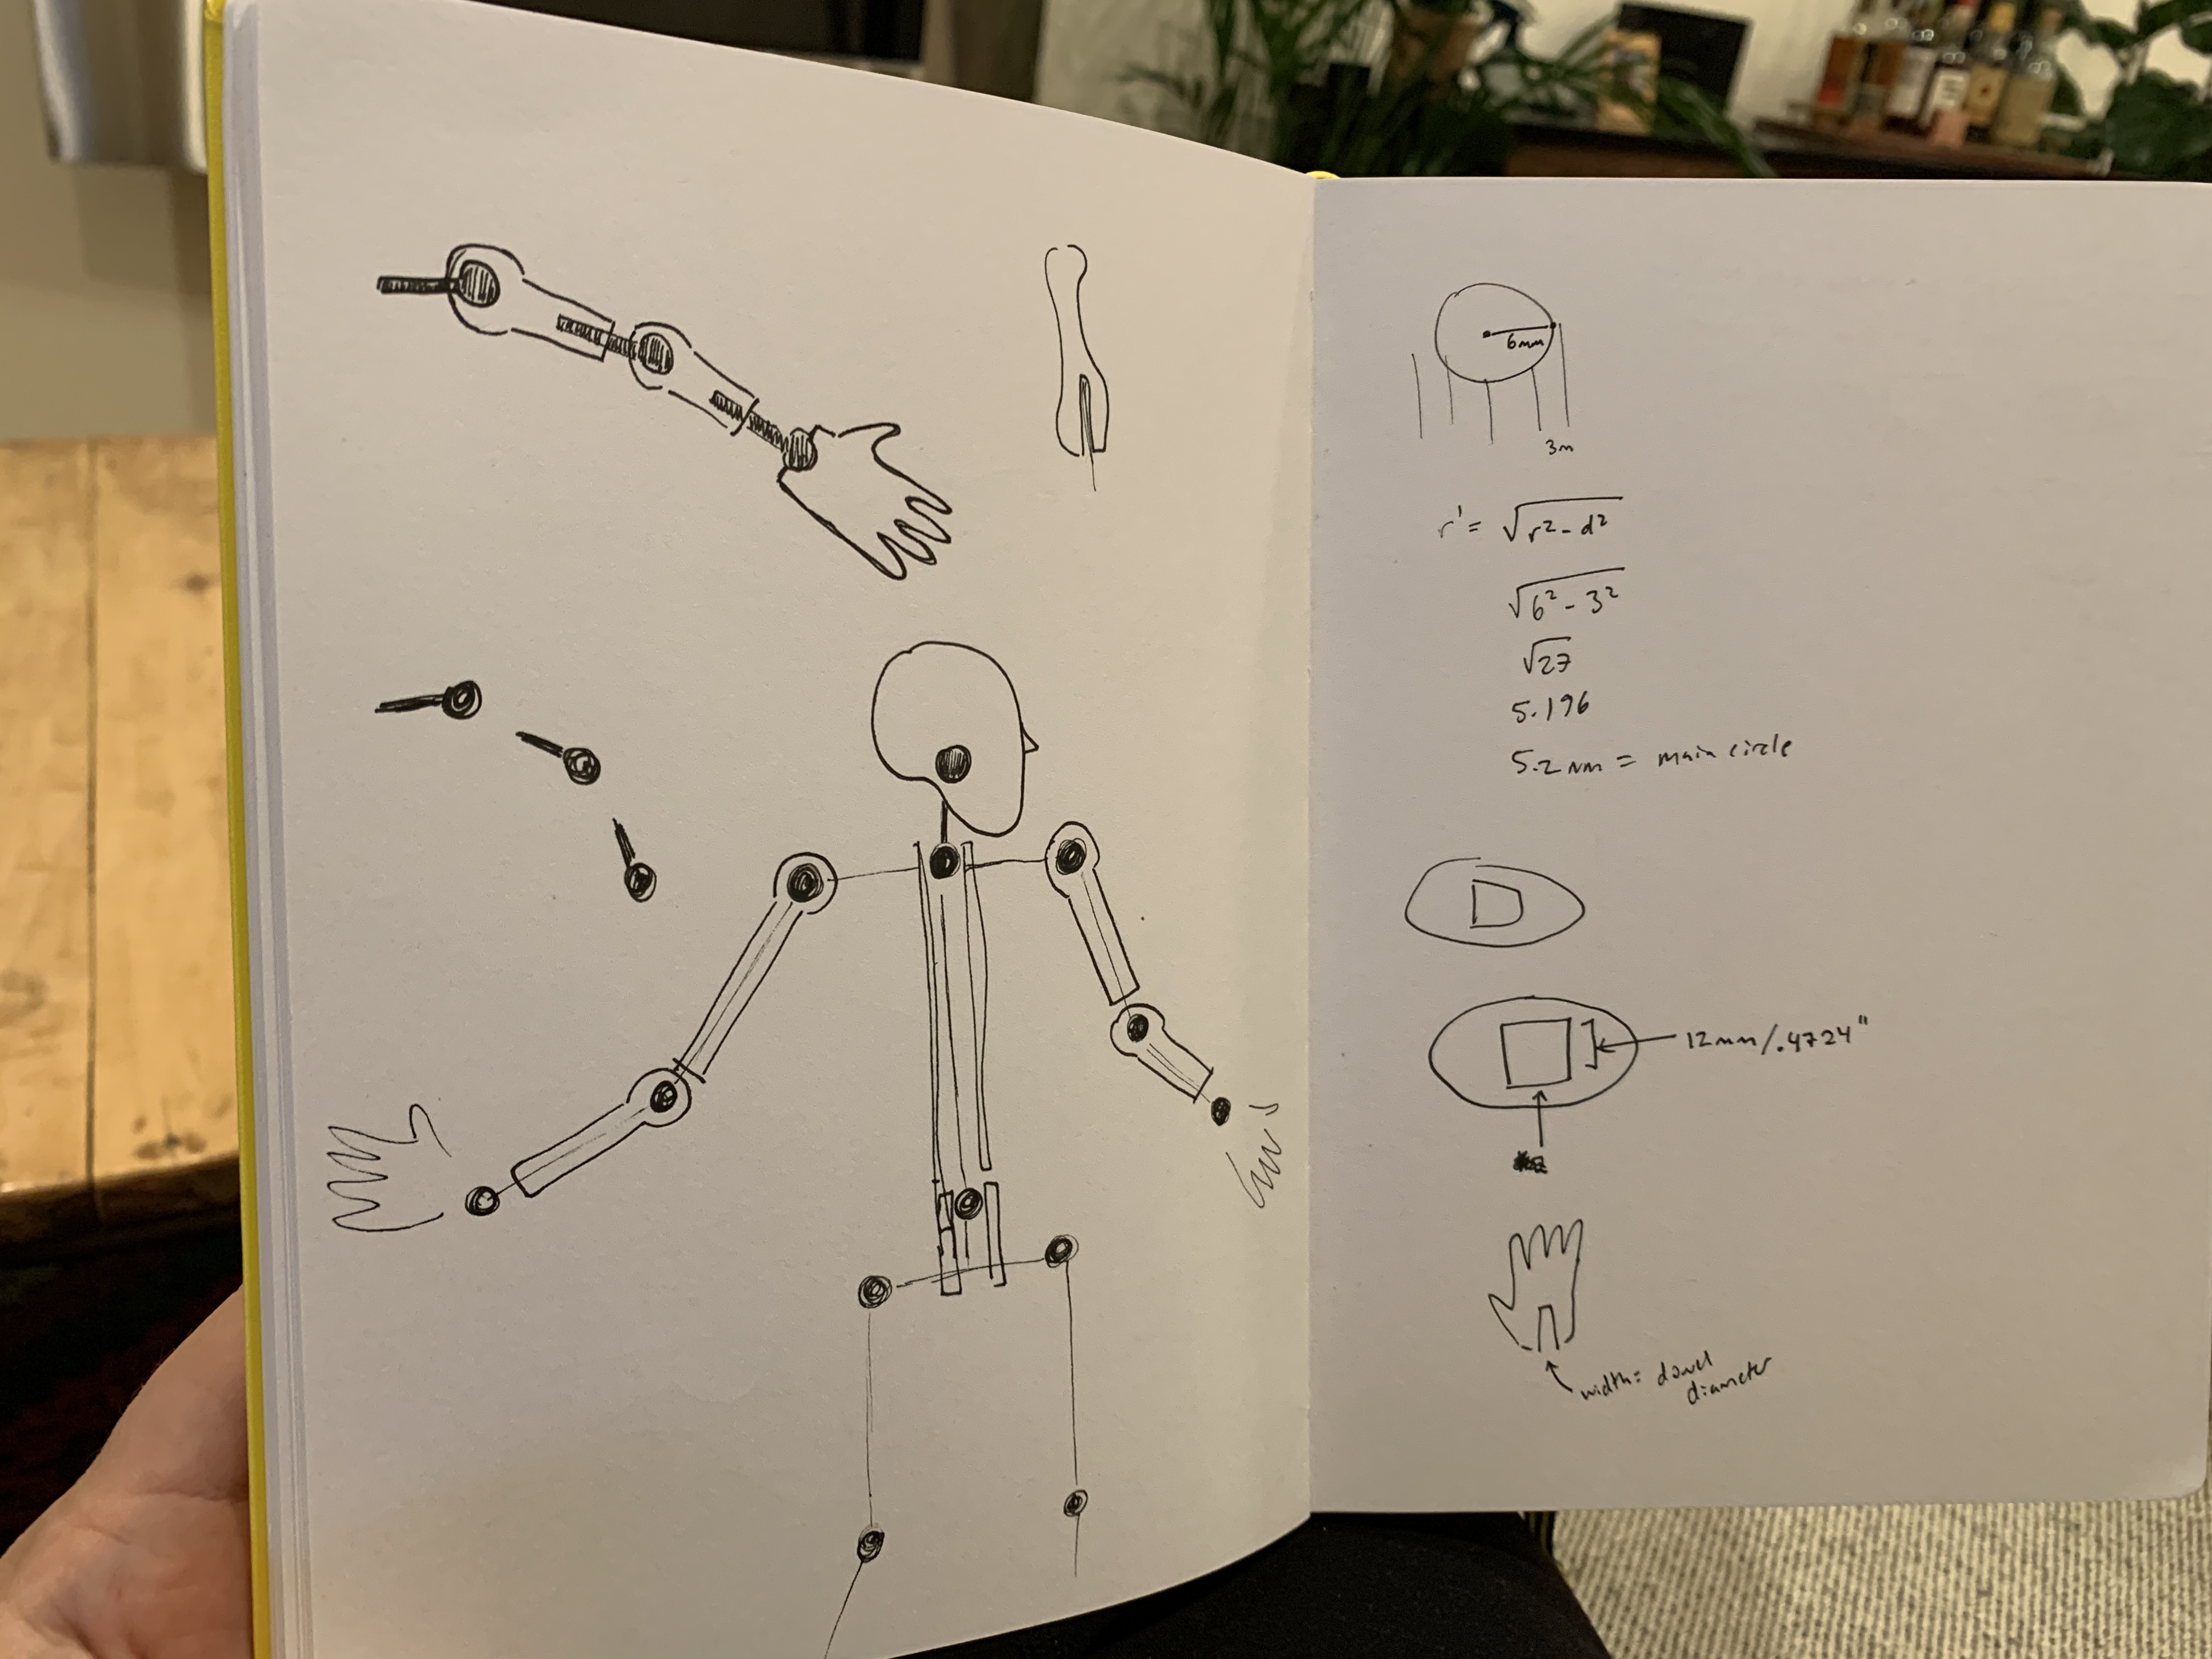 6mm
3m
r' = √r² - d²
√6² - 3²
√27
5.196
5.2 mm = main circle
12mm/.4724"
width = dowel
diameter